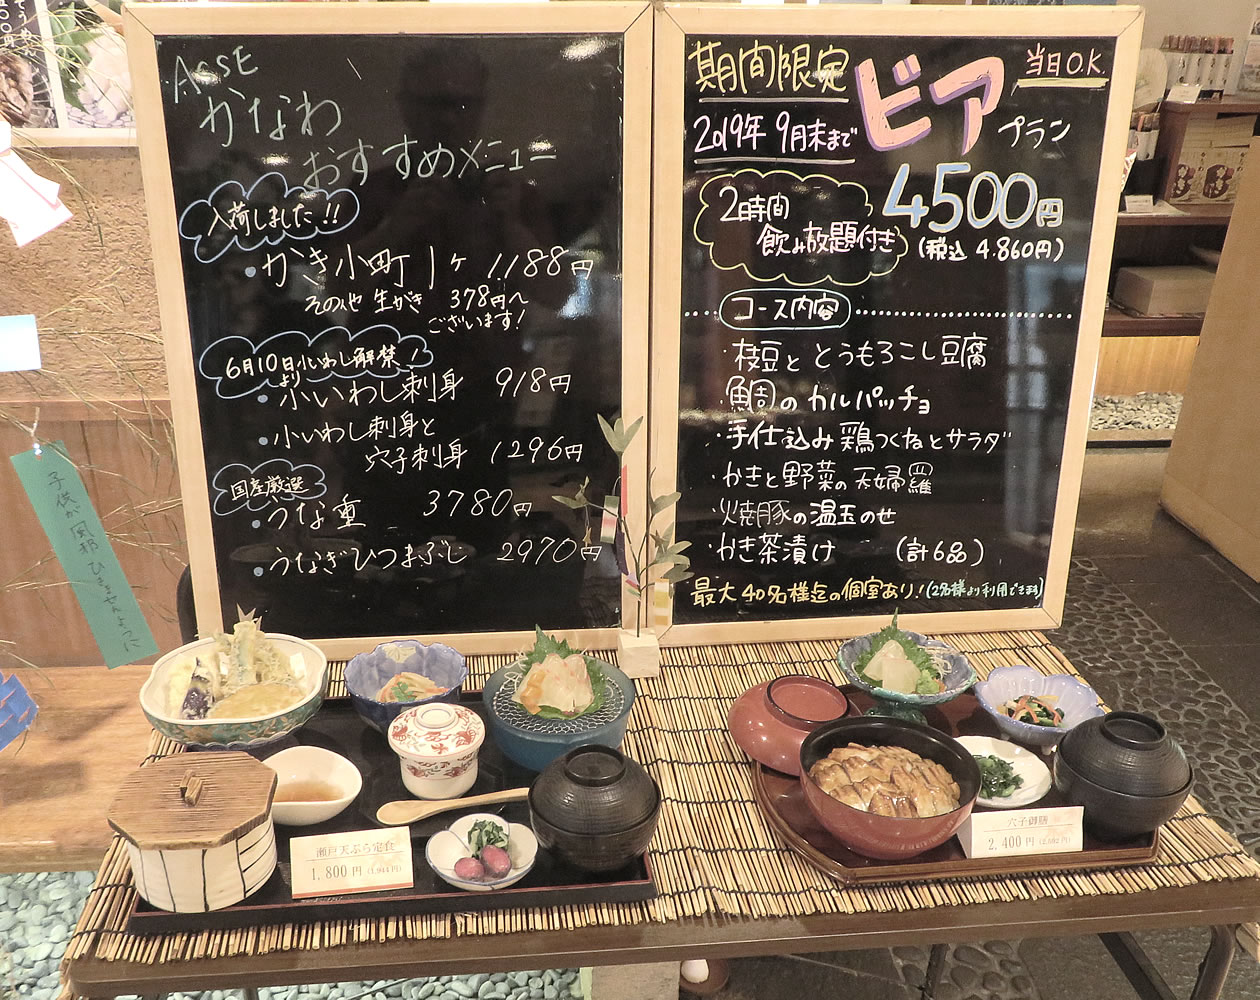 ASSE
かなわ
おすすめメニュー
入荷しました!!
・かき小町 1ヶ 1,188円
その他 生がき 378円〜
ございます!
6月10日小いわし解禁!
より
・小いわし刺身 918円
・小いわし刺身と
穴子刺身 1296円
国産厳選
・うな重 3780円
・うなぎひつまぶし 2970円
期間限定
ビア
プラン
当日O.K
2019年 9月末まで
4500円
(税込 4.860円)
2時間
飲み放題付き
コース内容
・枝豆ととうもろこし豆腐
・鯛のカルパッチョ
・手仕込み鶏つくねとサラダ
・かきと野菜の天婦羅
・焼豚の温玉のせ
・かき茶漬け (計6品)
最大40名様迄の個室あり!(2名様より利用できます)
子供が風邪ひきませんように
瀬戸天ぷら定食
1,800円(1,944円)
穴子御膳
2,400円(2,592円)